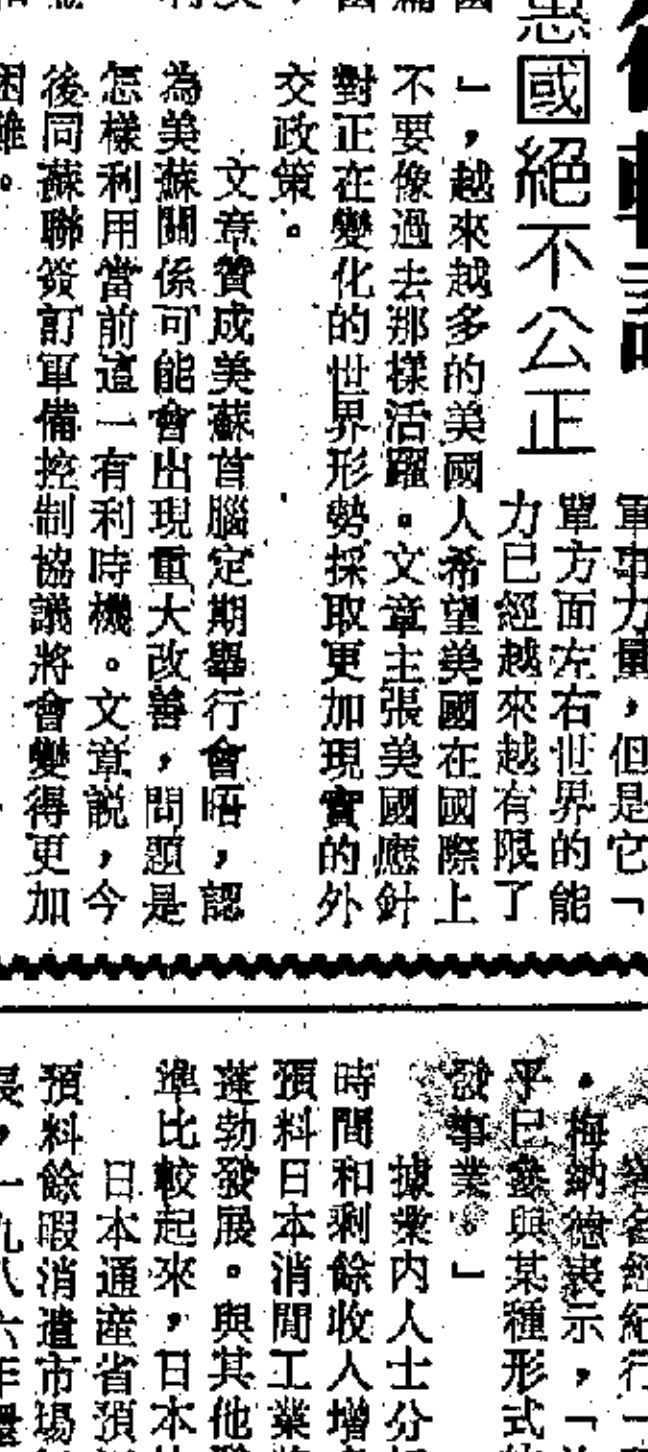 惠國絕不公正
軍事力量，但是它「
單方面左右世界的能
力已經越來越有限了
」，越來越多的美國人希望美國在國際上
不要像過去那樣活躍。文章主張美國應針
對正在變化的世界形勢採取更加現實的外
交政策。
文章贊成美蘇首腦定期舉行會晤，認
為美蘇關係可能會出現重大改善，問題是
怎樣利用當前這一有利時機。文章説，今
後同蘇聯簽訂軍備控制協議將會變得更加
困難。
著名經紀行一
・梅納德表示，「
乎已參與某種形式
發事業。」
據業内人士分
時間和剩餘收入增
預料日本消閒工業
蓬勃發展。與其他
準比較起來，日本
日本通産省預
預料餘暇消遣市場
長，一九八六年還